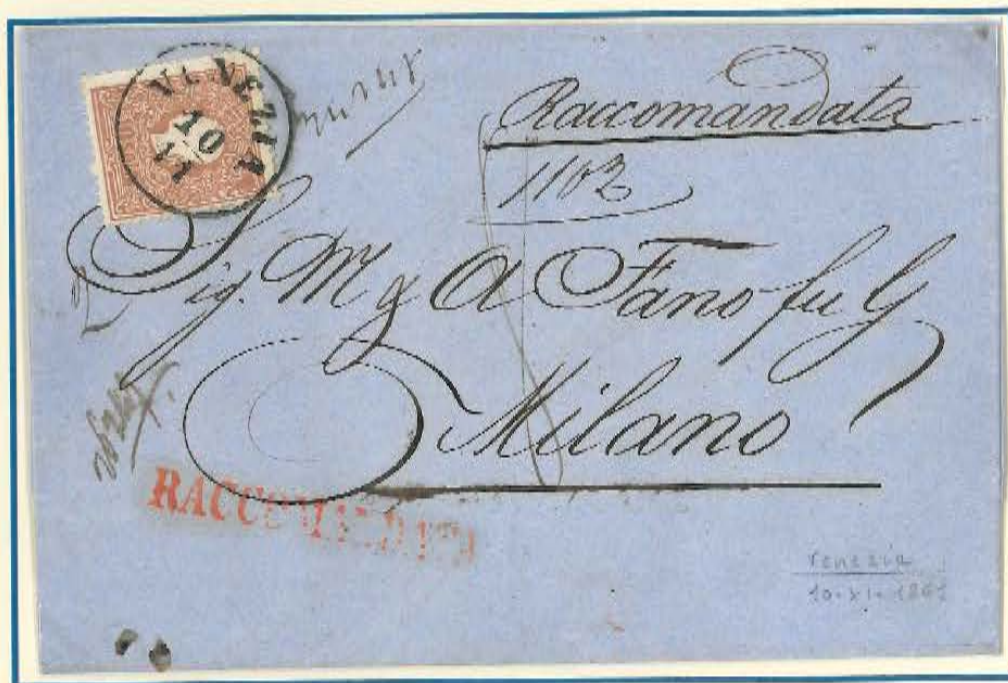 VENEZIA
10
11
Raccomandata
1102
Sig. M y A Fano fu G
Milano
RACCOMANDATA
Venezia
10-XI-1861